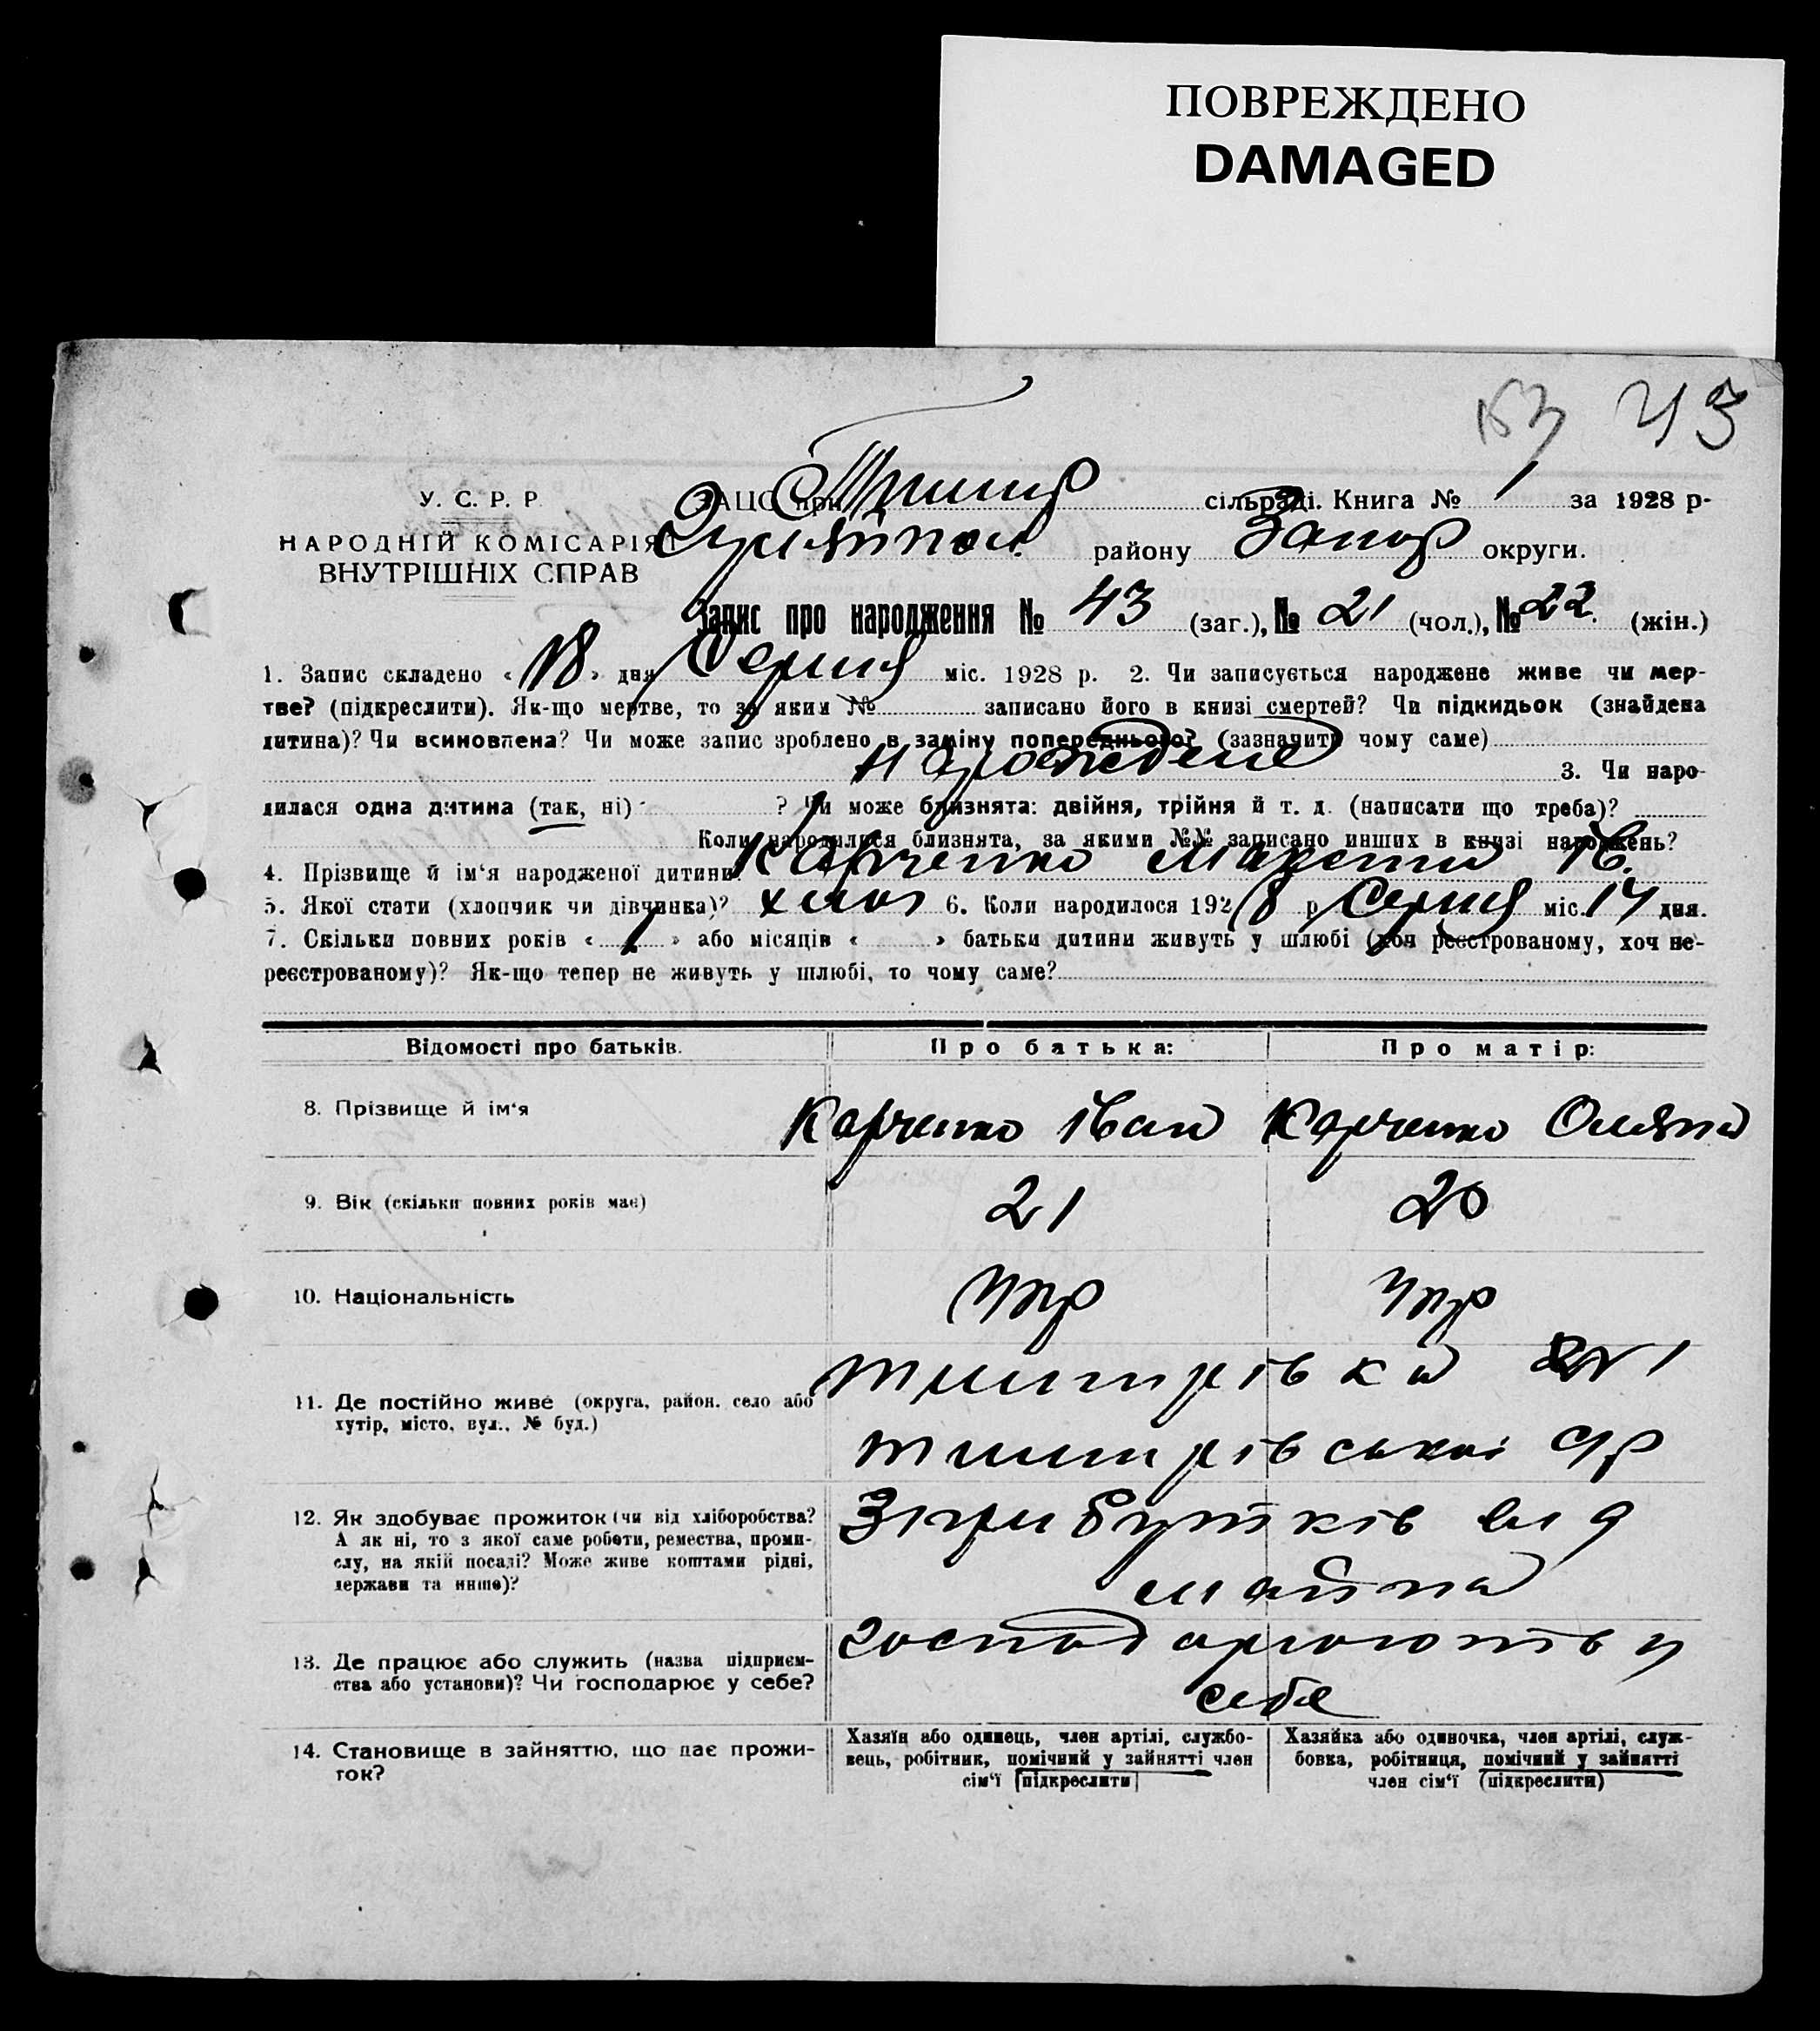 ПОВРЕЖДЕНО
DAMAGED
43
У. С. Р. Р.
НАРОДНІЙ КОМІСАРІЯТ
ВНУТРІШНІХ СПРАВ
ЗАЦС при сільраді. Книга № 1 за 1928 р-
району Запор округи.
Запис про народження № 43 (заг.), № 21 (чол.), № 22. (жін.)
1. Запис складено «18» дня Серпня міс. 1928 р. 2. Чи записується народжене живе чи мер-
тве? (підкреслити). Як-що мертве, то за яким № записано його в книзі смертей? Чи підкидьок (знайдена
дитина)? Чи всиновлена? Чи може запис зроблено в заміну попереднього? (зазначити чому саме)
народжене 3. Чи наро-
дилася одна дитина (так, ні) ? Чи може близнята: двійня, трійня й т. д. (написати що треба)?
Коли народилися близнята, за якими №№ записано инших в книзі народжень?
4. Прізвище й ім'я народженої дитини: Харченко Ів.
5. Якої стати (хлопчик чи дівчинка)? хлоп 6. Коли народилося 1928 р Серпня міс. 14 дня.
7. Скільки повних років «1» або місяців « » батьки дитини живуть у шлюбі (хоч реєстрованому, хоч не-
реєстрованому)? Як-що тепер не живуть у шлюбі, то чому саме?
Відомості про батьків. Про батька: Про матір:
8. Прізвище й ім'я Харченко Іван Харченко Оляна
9. Вік (скільки повних років має) 21 20
10. Національність Укр Укр
11. Де постійно живе (округа, район. село або
хутір, місто, вул., № буд.)
12. Як здобуває прожиток (чи від хліборобства?
А як ні, то з якої саме роботи, ремества, проми-
слу, на якій посаді? Може живе коштами рідні,
держави та инше)?
З прибутків від
майна
13. Де працює або служить (назва підприєм-
ства або установи)? Чи господарює у себе?
господарюють у
себе
14. Становище в зайняттю, що дає прожи-
ток?
Хазяїн або одинець, член артілі, службо-
вець, робітник, помічний у зайнятті член
сім'ї (підкреслити)
Хазяйка або одиночка, член артілі, служ-
бовка, робітниця, помічний у зайнятті
член сім'ї (підкреслити)